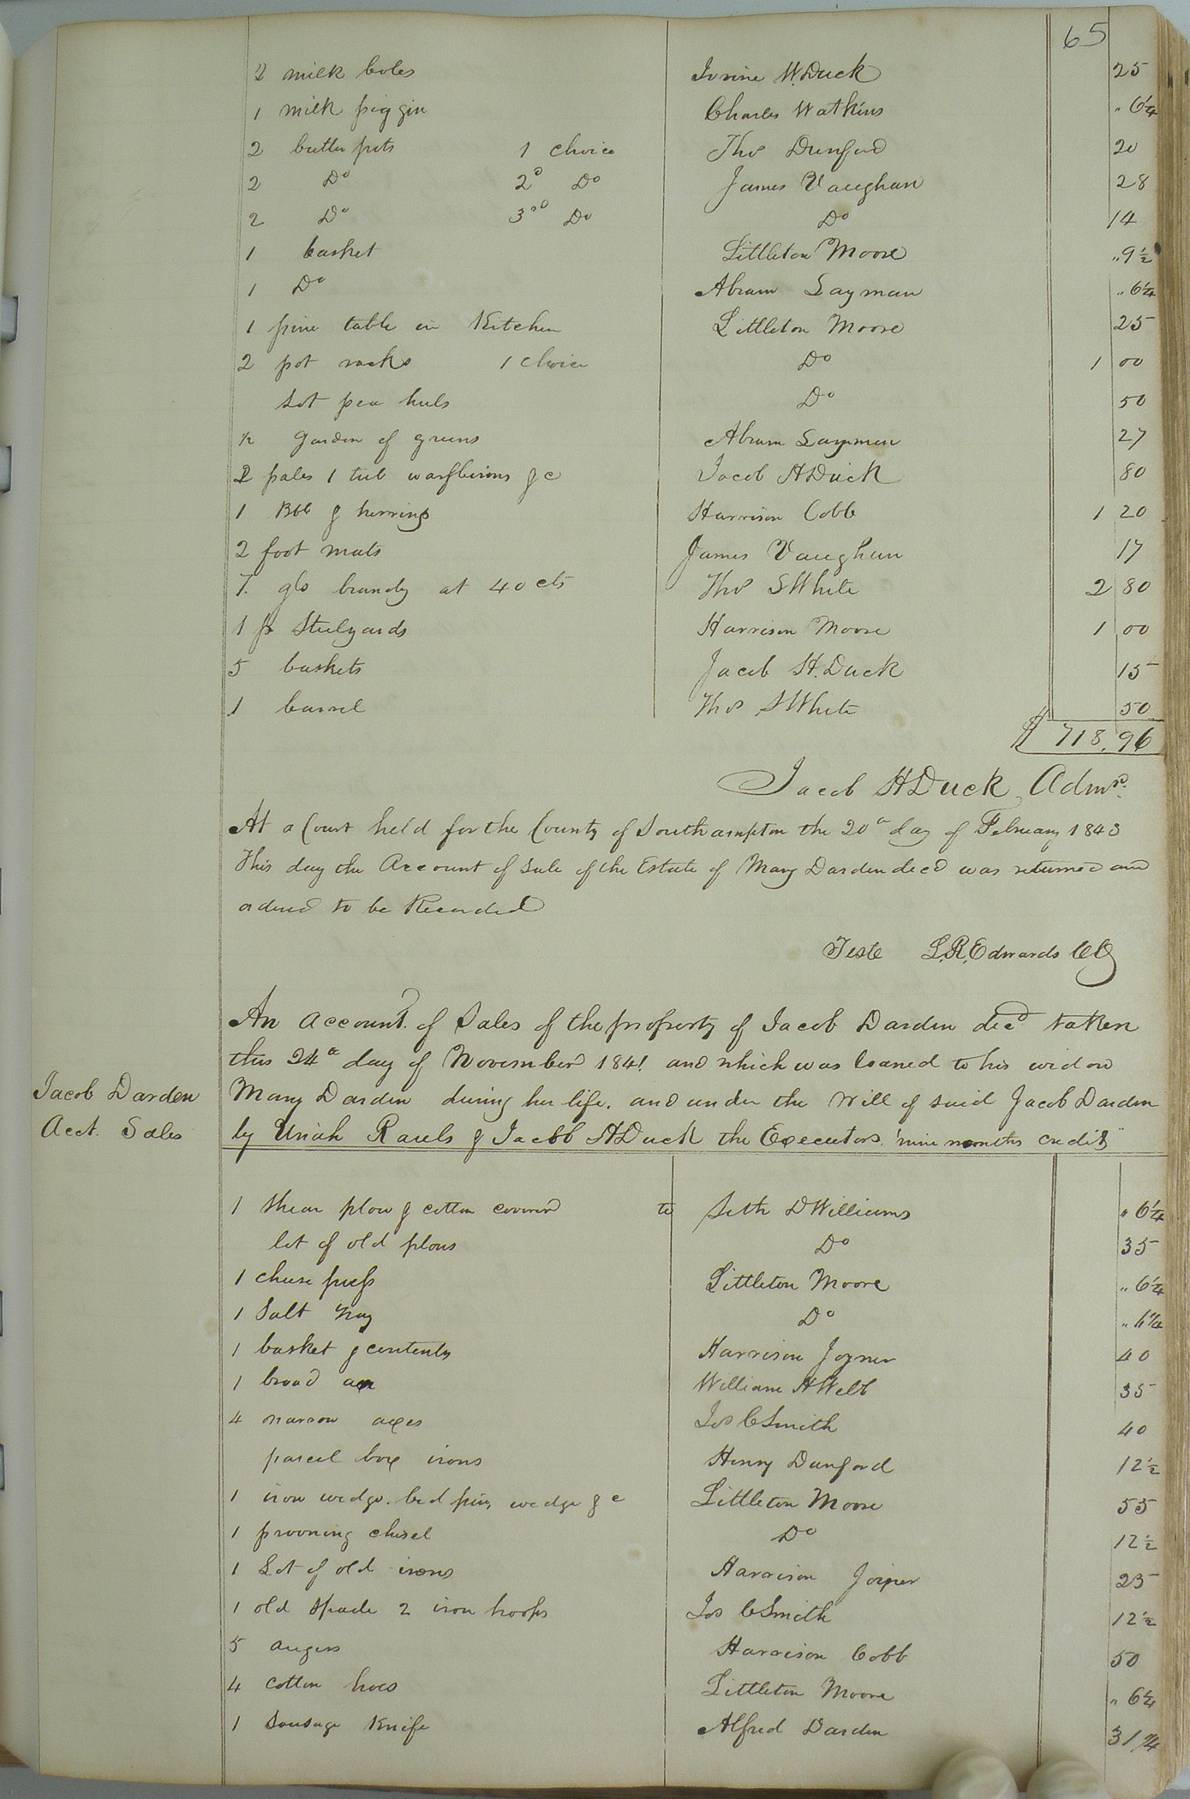 65
2 milk boles Irvine W. Duck 25
1 milk piggin Charles Watkins " 6 1/4
2 butter pots 1 choice Thos Dunford 20
2 Do 2d Do James Vaughan 28
2 Do 3rd Do Do 14
1 basket Littleton Moore " 9 1/2
1 Do Abram Layman " 6 1/4
1 pine table in Kitchen Littleton Moore 25
2 pot racks 1 choice Do 1 00
Lot pea huls Do 50
1/2 Garden of greens Abram Laymen 27
2 pales 1 tub &c Jacob H Duck 80
1 Bbl & herrings Harrison Cobb 1 20
2 foot mats James Vaughan 17
7. gls brandy at 40 cts Thos S White 2 80
1 pr Steelyards Harrison Moore 1 00
5 baskets Jacob H. Duck 15
1 barrel Thos S White 50
$ 718.96
Jacob H Duck Admr.
At a Court held for the County of Southampton the 20th day of February 1843
This day the Account of Sale of the Estate of Mary Darden decd was returned and
ordered to be Recorded
Teste L. R. Edwards CC
An Account of Sales of the property of Jacob Darden decd taken
this 24th day of November 1841 and which was loaned to his widow
Jacob Darden Mary Darden during her life. and under the will of said Jacob Darden
Acct. Sales by Uriah Rawls & Jacob H Duck the Executors "nine months credit"
1 Shear plow & cotton coverer to Seth D Williams " 6 1/4
lot of old plows Do 35
1 cheese press Littleton Moore " 6 1/4
1 Salt tray Do " 6 1/4
1 basket & contents Harrison Joyner 40
1 broad ax William H Webb 35
4 narrow axes Jos C Smith 40
parcel box irons Henry Dunford 12 1/2
1 iron wedge. bed pins, wedge &c Littleton Moore 55
1 prooning chisel Do 12 1/2
1 Lot of old irons Harrison Joiner 25
1 old Spade 2 iron hoops Jos C Smith 12 1/2
5 augers Harrison Cobb 50
4 cotton hoes Littleton Moore " 6 1/4
1 Sausage Knife Alfred Darden 31 1/4